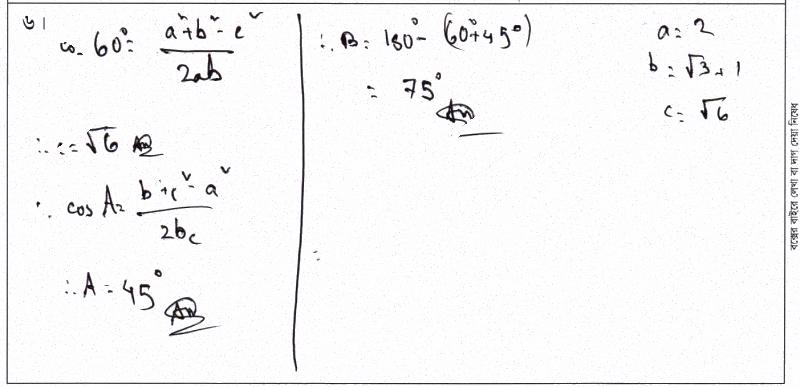 ৬।
cos 60° = a² + b² - c² / 2ab
∴ c = √6 Ans
∴ cos A = b² + c² - a² / 2bc
∴ A = 45° Ans
∴ B = 180° - (60° + 45°)
= 75° Ans
a = 2
b = √3 + 1
c = √6
বক্সের বাইরে লেখা বা দাগ দেয়া নিষেধ